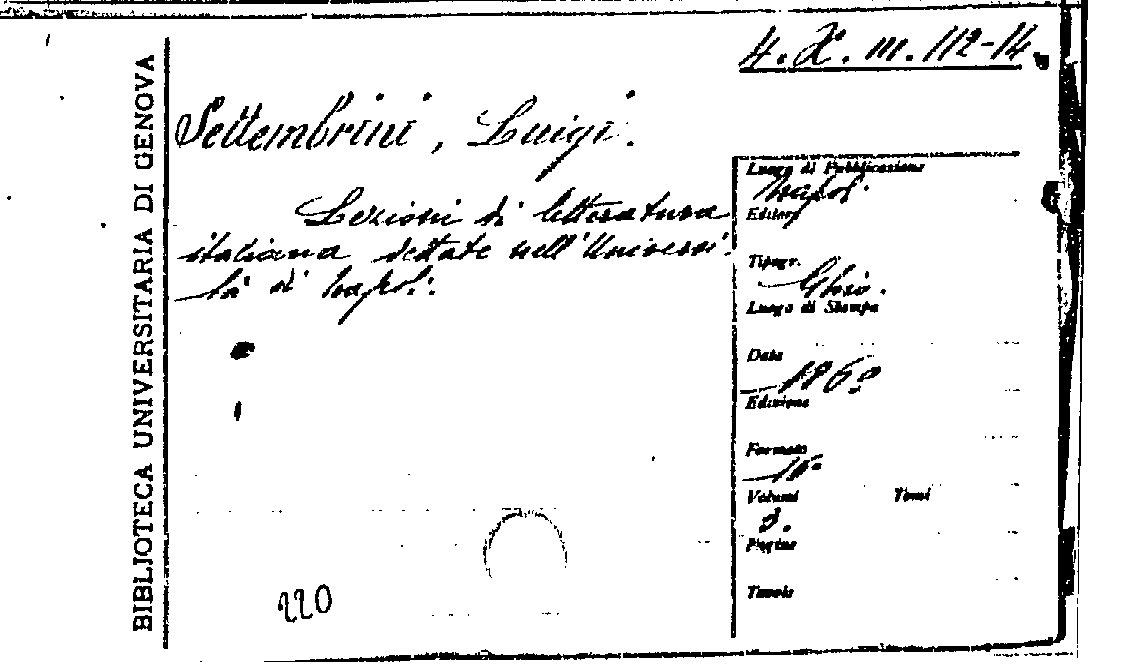 4. X. m. 112-14.
BIBLIOTECA UNIVERSITARIA DI GENOVA
Settembrini, Luigi.
Lezioni di letteratura
italiana dettate nell'Universi
tà di Napoli.
Luogo di Pubblicazione
Napoli
Editore
Tipogr.
Ghio.
Luogo di Stampa
Data
Edizione
Formato
16°
Volumi Tomi
3.
Pagine
Tavole
220